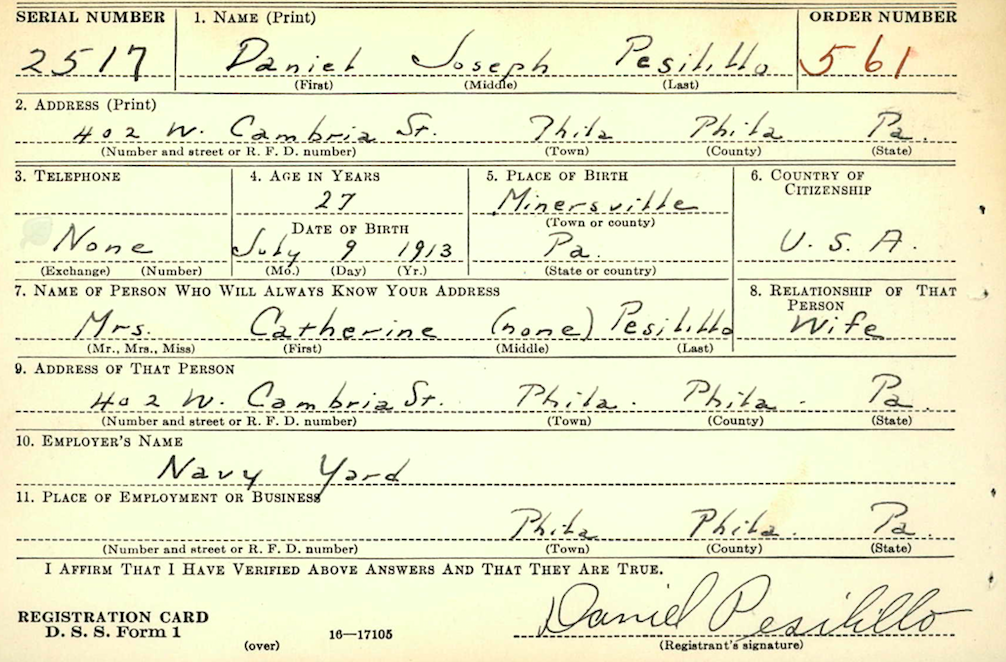 SERIAL NUMBER 1. NAME (Print) ORDER NUMBER
2517 Daniel Joseph Pesilillo 561
(First) (Middle) (Last)
2. ADDRESS (Print)
402 W. Cambria St. Phila Phila Pa.
(Number and street or R. F. D. number) (Town) (County) (State)
3. TELEPHONE 4. AGE IN YEARS 5. PLACE OF BIRTH 6. COUNTRY OF CITIZENSHIP
27 Minersville
DATE OF BIRTH (Town or county)
None July 9 1913 Pa. U. S. A.
(Exchange) (Number) (Mo.) (Day) (Yr.) (State or country)
7. NAME OF PERSON WHO WILL ALWAYS KNOW YOUR ADDRESS 8. RELATIONSHIP OF THAT PERSON
Mrs. Catherine (none) Pesilillo Wife
(Mr., Mrs., Miss) (First) (Middle) (Last)
9. ADDRESS OF THAT PERSON
402 W. Cambria St. Phila. Phila. Pa.
(Number and street or R. F. D. number) (Town) (County) (State)
10. EMPLOYER'S NAME
Navy Yard
11. PLACE OF EMPLOYMENT OR BUSINESS
Phila Phila. Pa.
(Number and street or R. F. D. number) (Town) (County) (State)
I AFFIRM THAT I HAVE VERIFIED ABOVE ANSWERS AND THAT THEY ARE TRUE.
REGISTRATION CARD
D. S. S. Form 1 16—17105 Daniel Pesilillo
(over) (Registrant's signature)